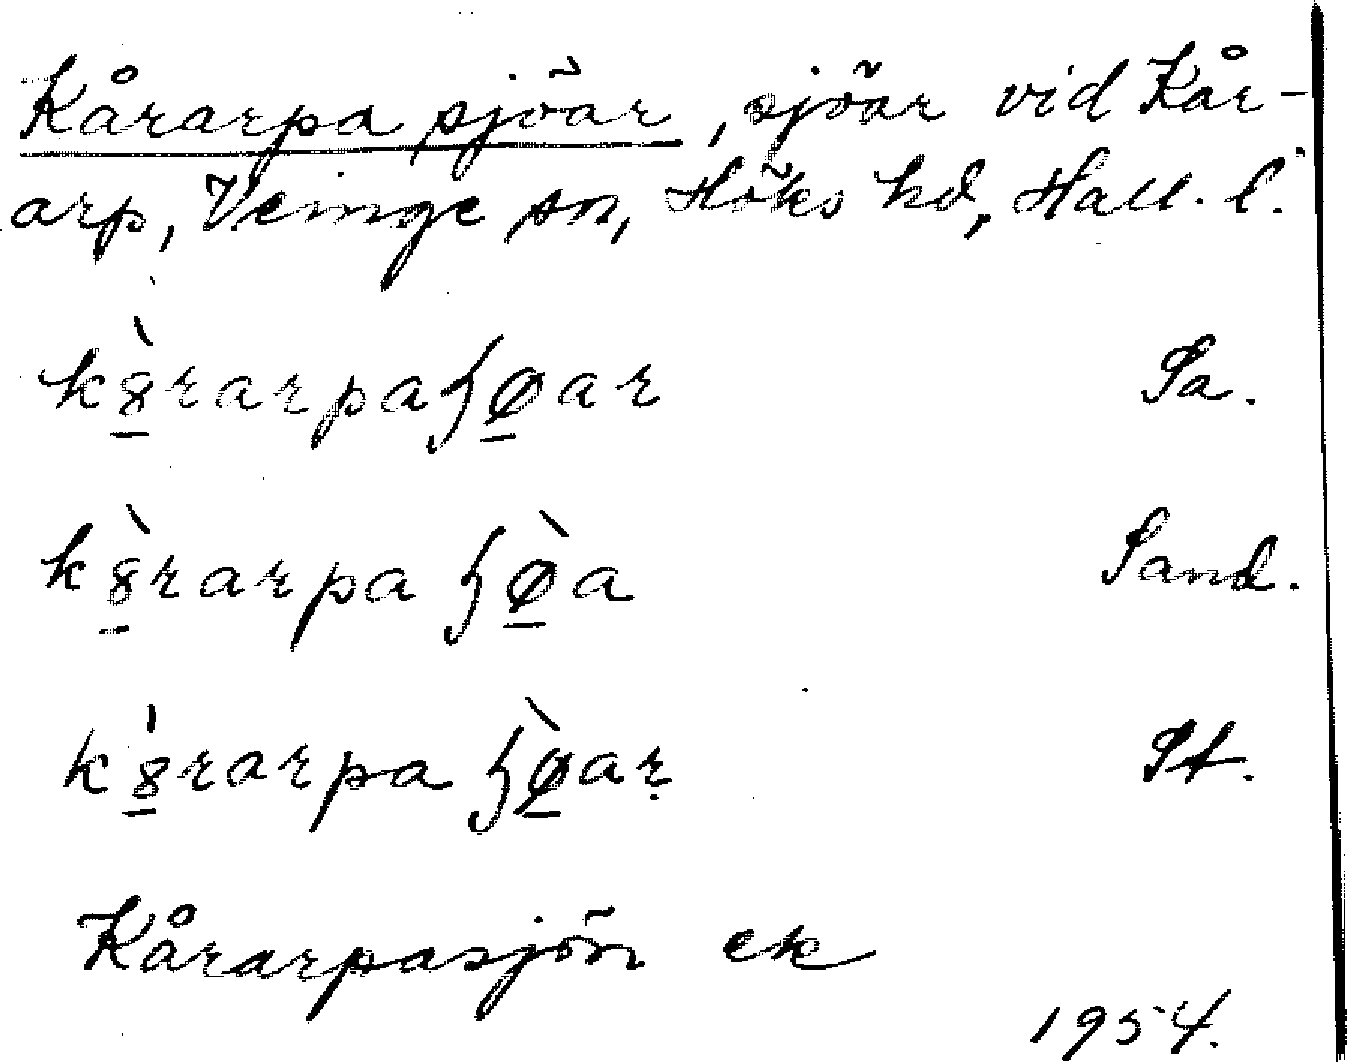 Kårarpa sjöar, sjöar vid Kår-
arp, Veinge sn, Höks hd, Hall. l.
k8̲̀rarpaɧø̲ar Sa.
k8̲̀rarpa ɧø̲̀a Sand.
k8̲́rarpa ɧø̲̀aṛ St.
Kårarpasjön ek
1954.